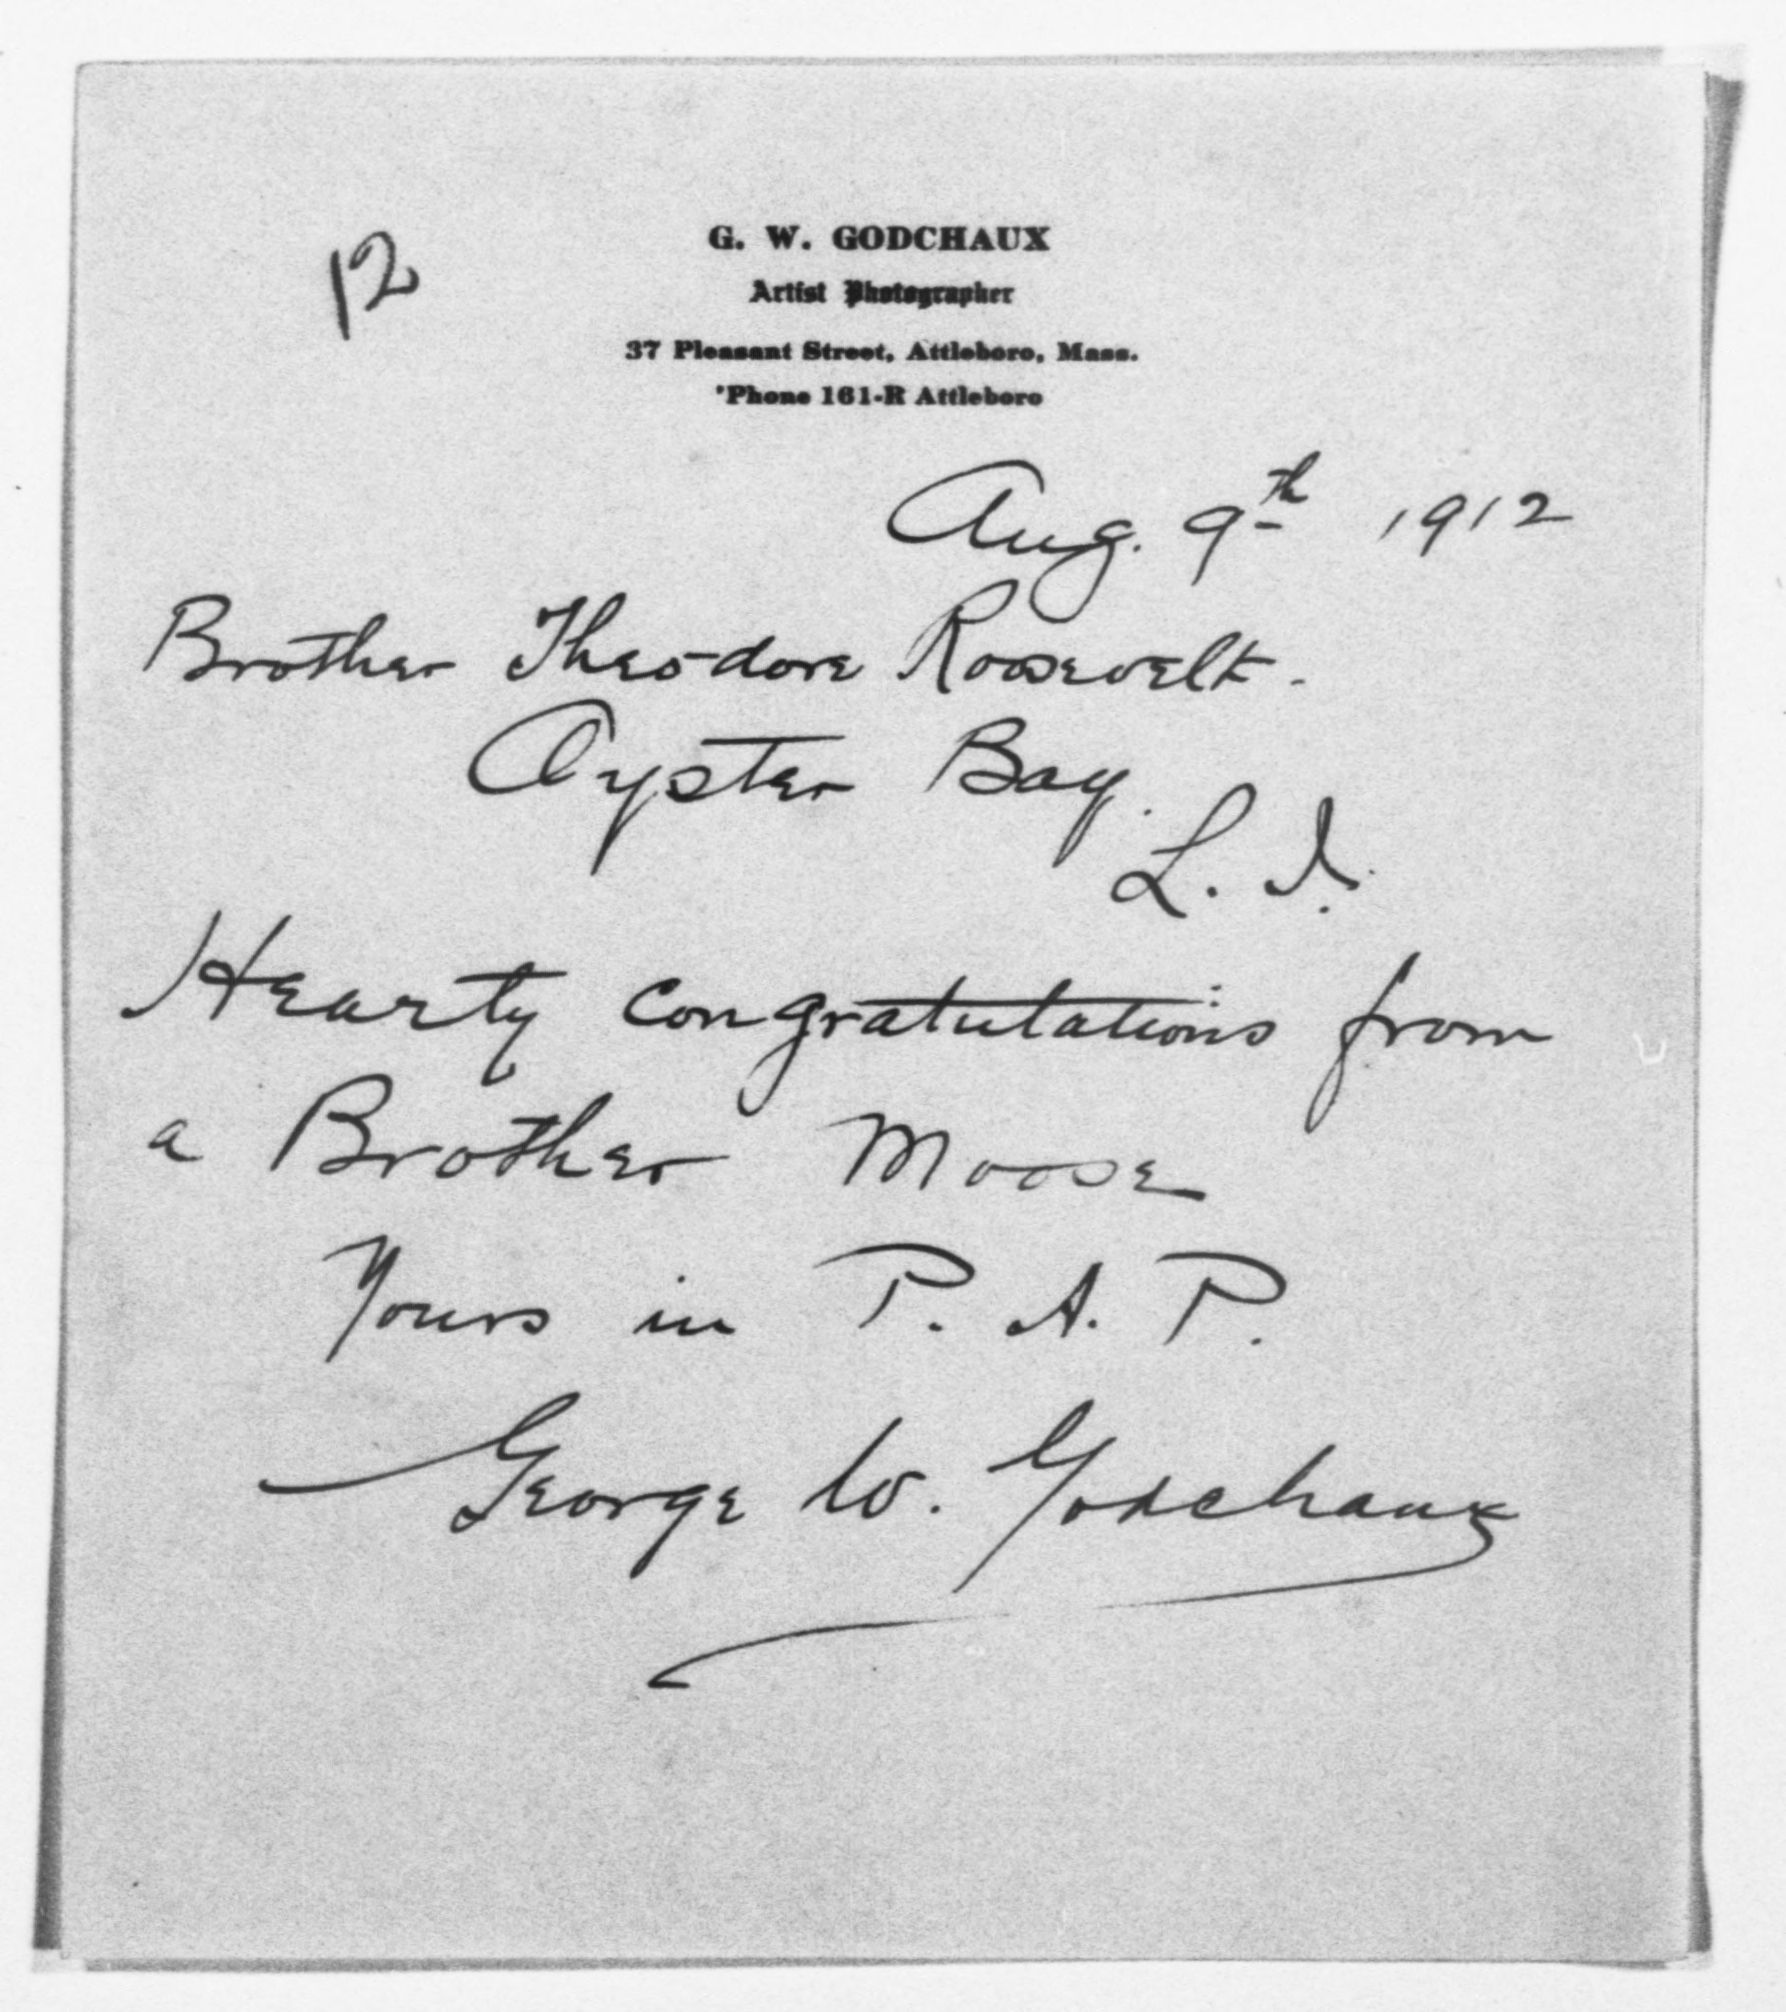 12
G. W. GODCHAUX
Artist Photographer
37 Pleasant Street, Attleboro, Mass.
'Phone 161-R Attleboro
Aug. 9th 1912
Brother Theodore Roosevelt.
Oyster Bay.
L. I.
Hearty congratulations from
a Brother Moose
Yours in P. A. P.
George W. Godchaux